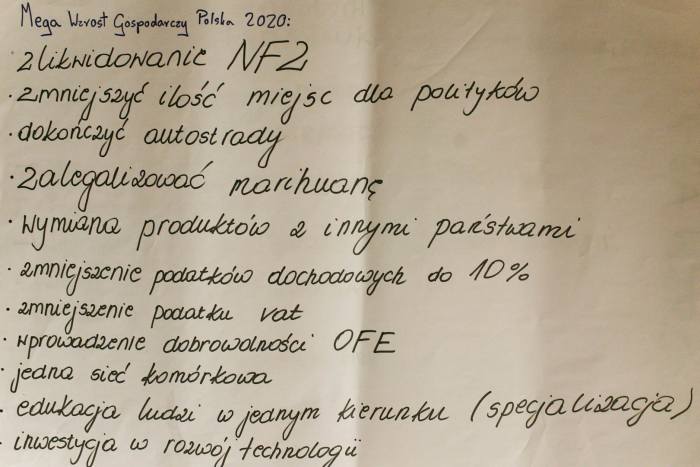 Mega Wzrost Gospodarczy Polska 2020:
· zlikwidowanie NFZ
· zmniejszyć ilość miejsc dla polityków
· dokończyć autostrady
· zalegalizować marihuanę
· wymiana produktów z innymi państwami
· zmniejszenie podatków dochodowych do 10%
· zmniejszenie podatku vat
· wprowadzenie dobrowolności OFE
· jedna sieć komórkowa
· edukacja ludzi w jednym kierunku (specjalizacja)
· inwestycja w rozwój technologii